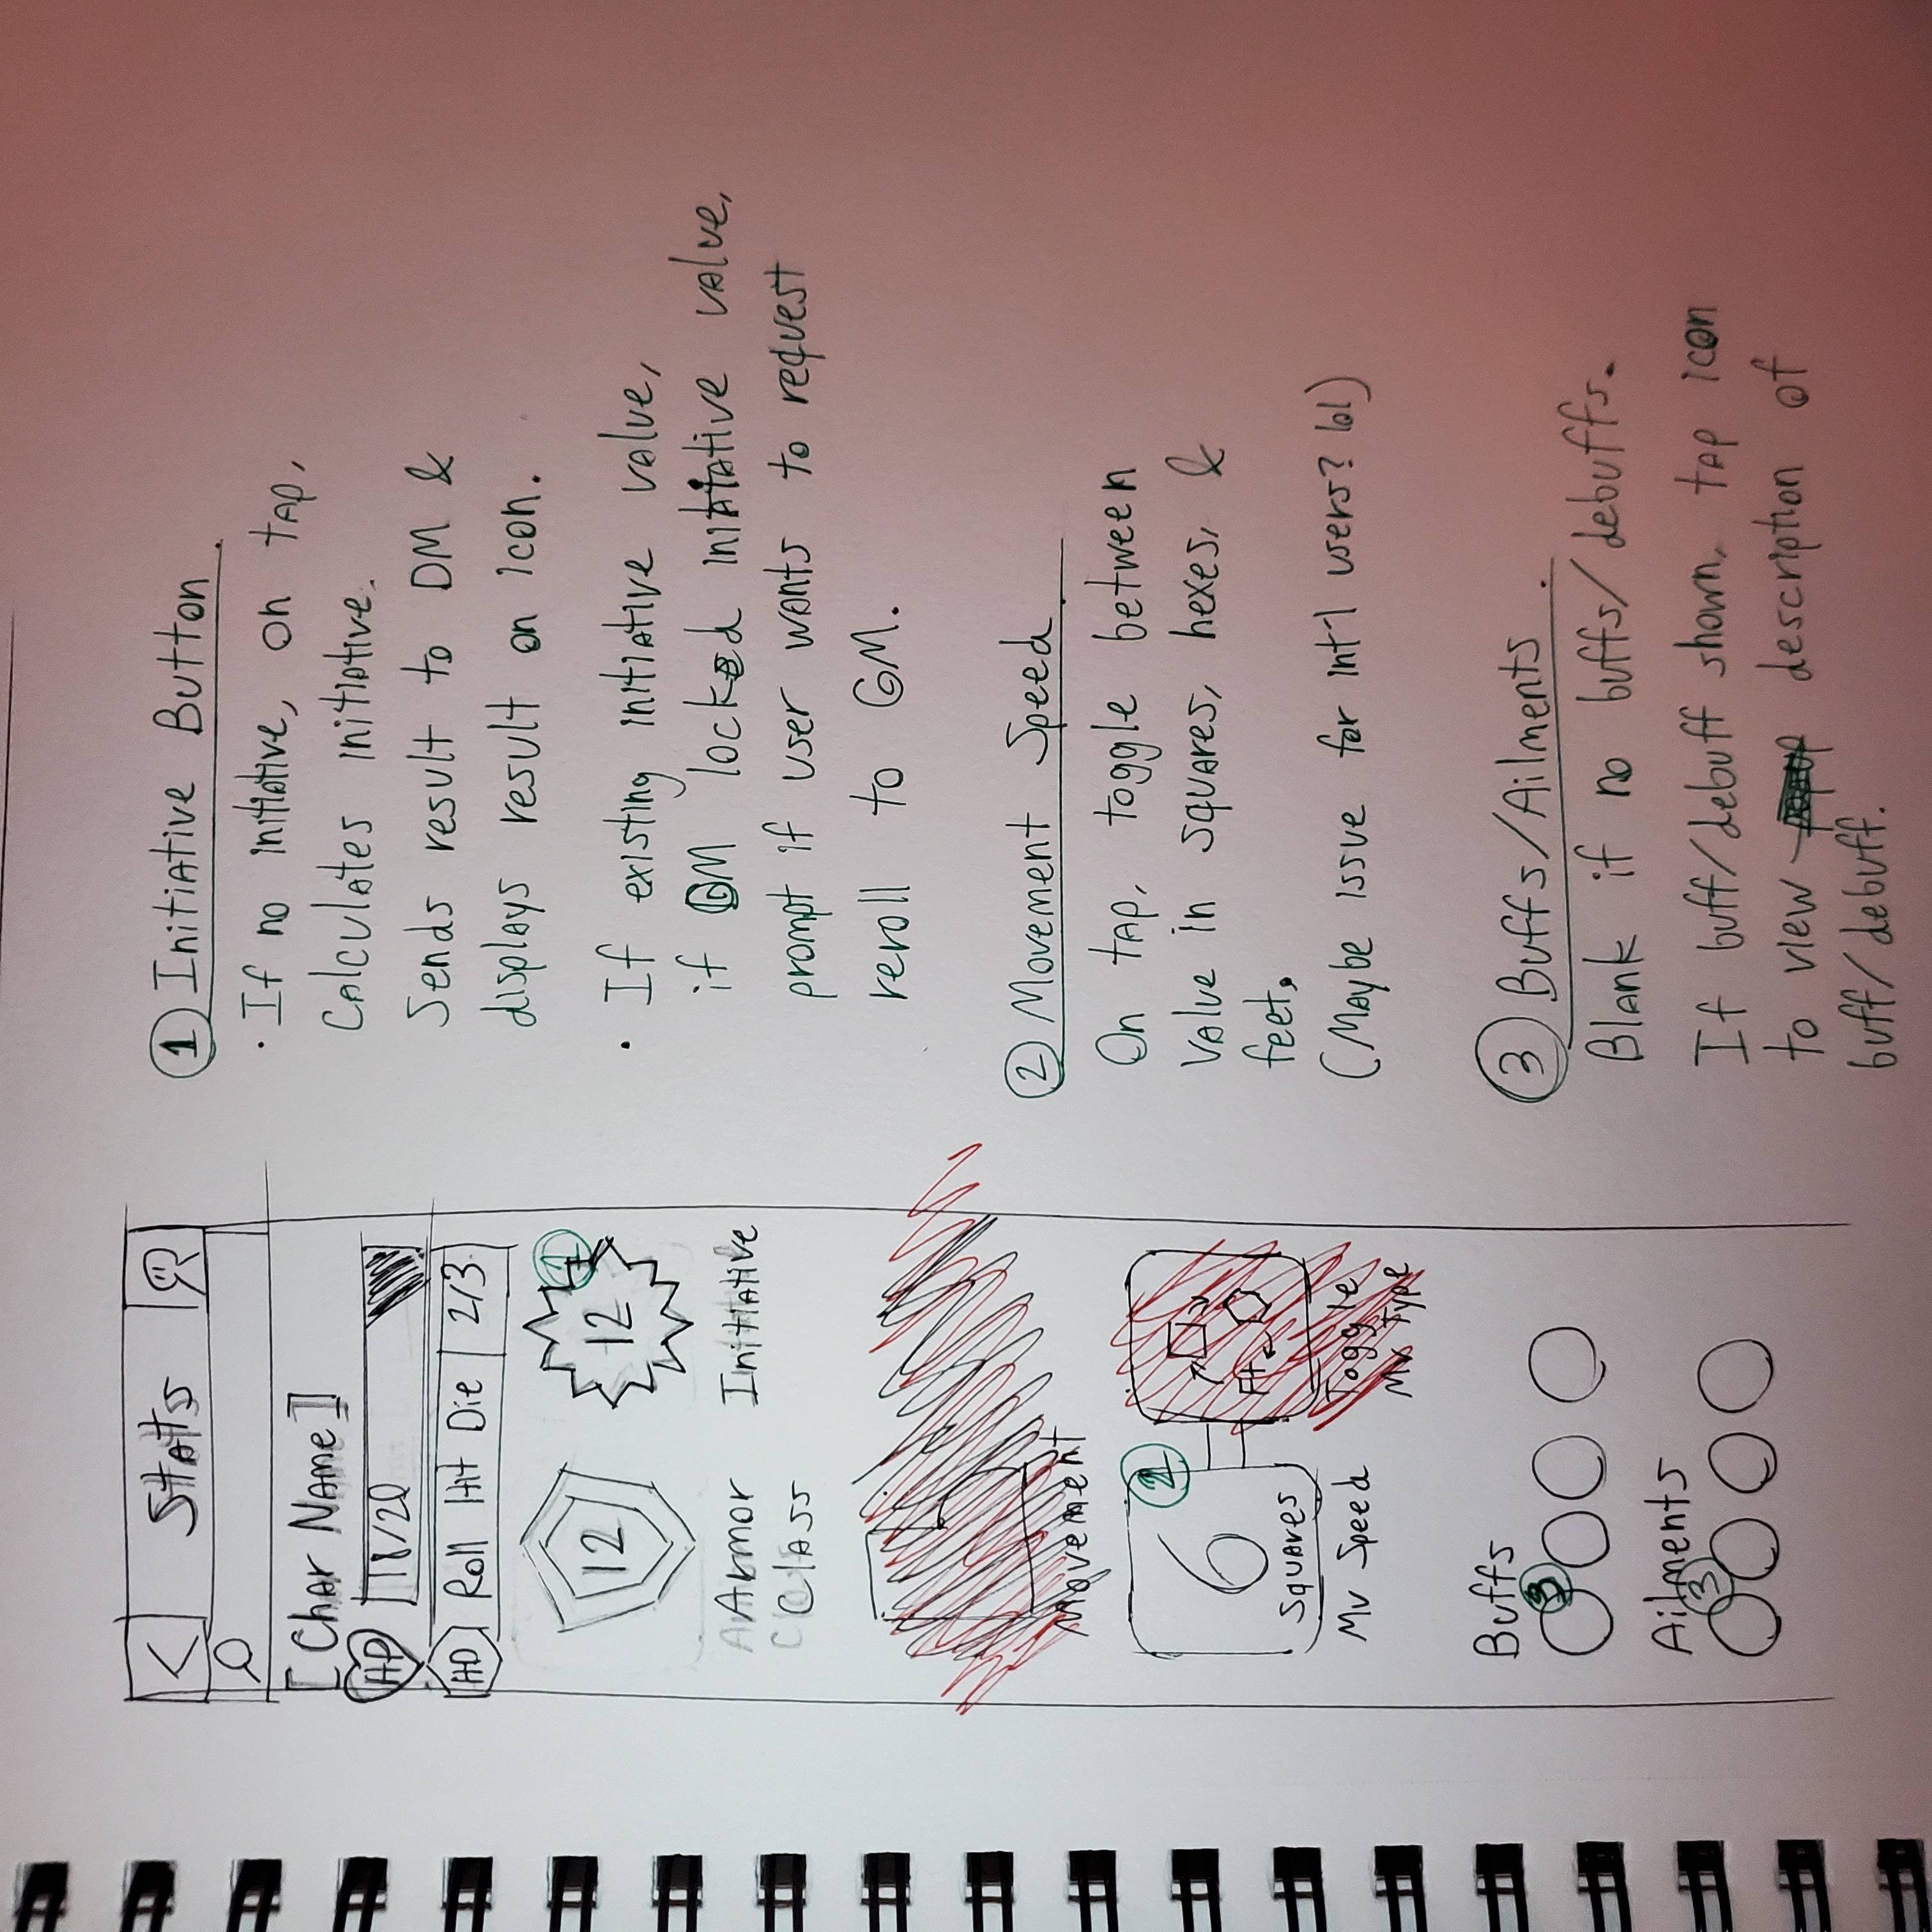 < Stats
[Char Name]
HP 18/20
HD Roll Hit Die 2/3
12 12 1
Armor Initiative
Class
Movement
6 2
Ft
Squares
Mv Speed
Toggle
Mv Type
Buffs
3
Ailments
3
1 Initiative Button
· If no initiative, on tap,
Calculates initiative.
Sends result to DM &
displays result on icon.
· If existing initiative value,
if GM locked initiative value,
prompt if user wants to request
reroll to GM.
2 Movement Speed
On tap, toggle between
value in squares, hexes, &
feet.
(Maybe issue for int'l users? lol)
3 Buffs/Ailments
Blank if no buffs/debuffs.
If buff/debuff shown, tap icon
to view popup description of
buff/debuff.